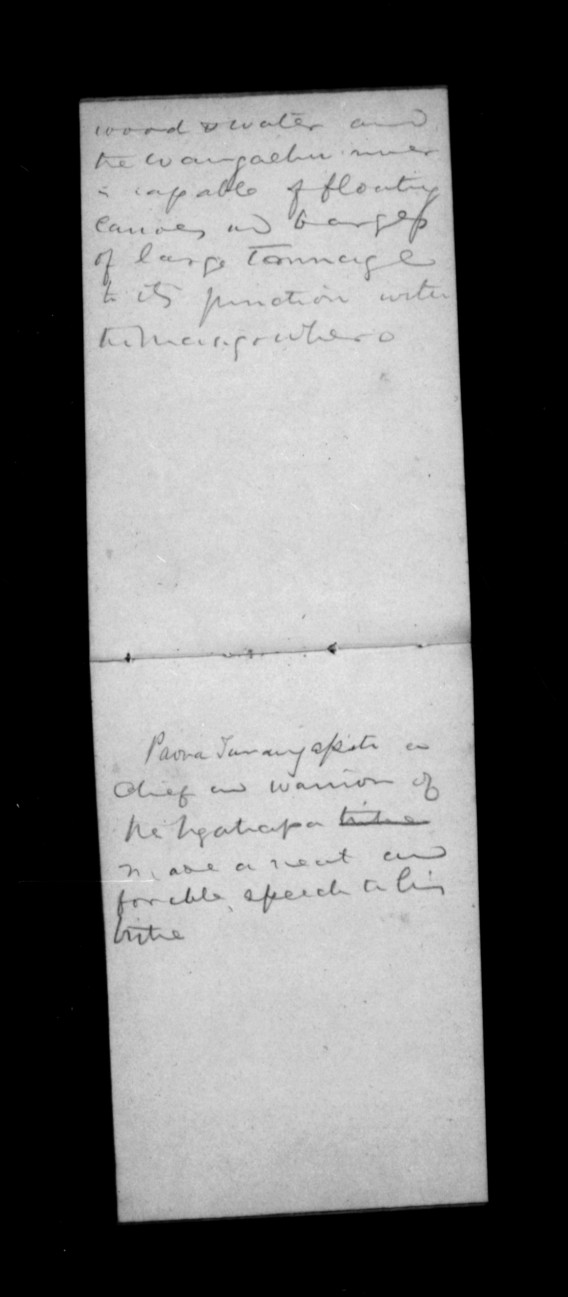 wood & water and
the Wangaehu river
is capable of floating
canoes and barges
of large Tonnage
to its junction with
the Mangawhero
Paora Turangapito a
Chief and warrior of
the Ngatiapa tribe
made a neat and
forcible speech to his
tribe